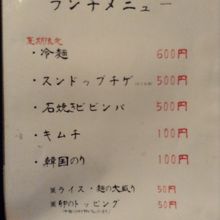 ランチメニュー
夏期限定
・冷麺 600円
・スンドゥブチゲ 500円
・石焼きビビンバ 500円
・キムチ 100円
・韓国のり 100円
※ライス・麺の大盛り 50円
※卵のトッピング 50円